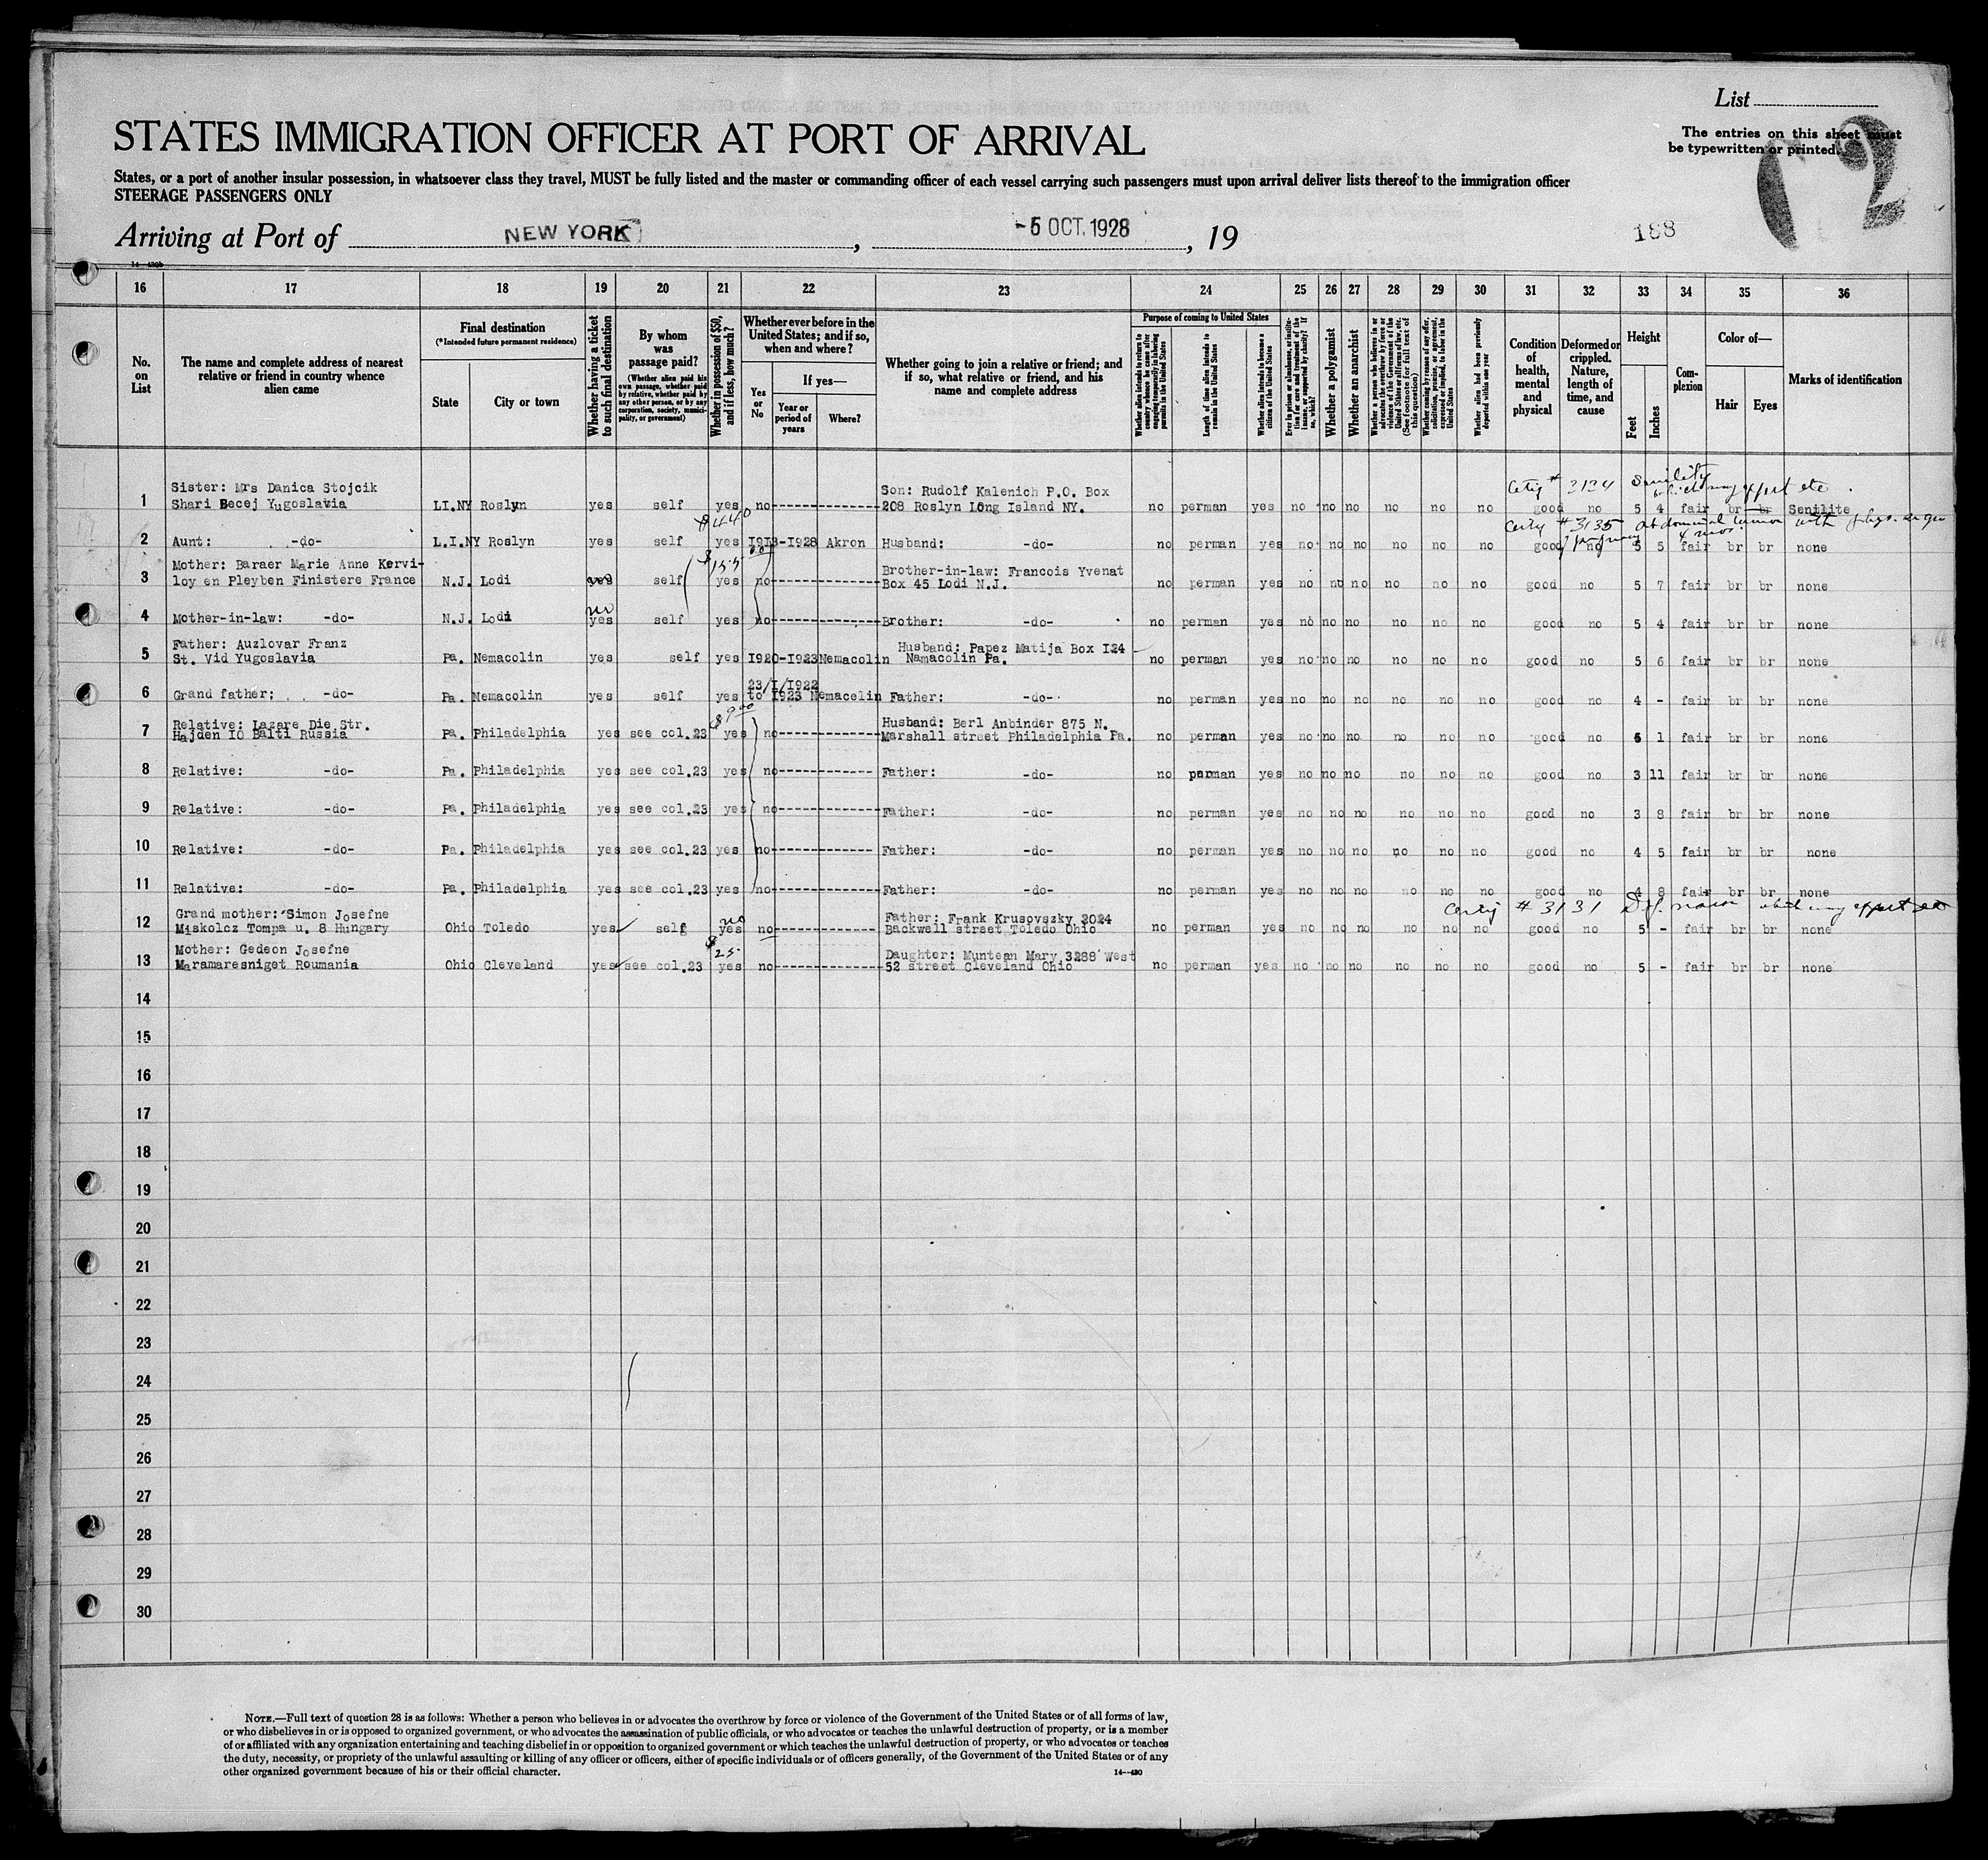 List
The entries on this sheet must
be typewritten or printed.
STATES IMMIGRATION OFFICER AT PORT OF ARRIVAL
States, or a port of another insular possession, in whatsoever class they travel, MUST be fully listed and the master or commanding officer of each vessel carrying such passengers must upon arrival deliver lists thereof to the immigration officer
STEERAGE PASSENGERS ONLY
Arriving at Port of NEW YORK, -5 OCT. 1928, 19
188
14-430b
16 17 18 19 20 21 22 23 24 25 26 27 28 29 30 31 32 33 34 35 36
No. on List
The name and complete address of nearest relative or friend in country whence alien came
Final destination
(*Intended future permanent residence)
State
City or town
Whether having a ticket to such final destination
By whom was passage paid?
(Whether alien paid his own passage, whether paid by relative, whether paid by any other person, or by any corporation, society, municipality, or government)
Whether in possession of $50, and if less, how much?
Whether ever before in the United States; and if so, when and where?
Yes or No
If yes—
Year or period of years
Where?
Whether going to join a relative or friend; and if so, what relative or friend, and his name and complete address
Purpose of coming to United States
Whether alien intends to return to country whence he came after engaging temporarily in laboring pursuits in the United States
Length of time alien intends to remain in the United States
Whether alien intends to become a citizen of the United States
Ever in prison or almshouse, or institution for care and treatment of the insane, or supported by charity? If so, which?
Whether a polygamist
Whether an anarchist
Whether a person who believes in or advocates the overthrow by force or violence of the Government of the United States or all forms of law, etc. (See footnote for full text of this question)
Whether coming by reason of any offer, solicitation, promise, or agreement, expressed or implied, to labor in the United States
Whether alien had been previously deported within one year
Condition of health, mental and physical
Deformed or crippled. Nature, length of time, and cause
Height
Feet
Inches
Complexion
Color of—
Hair
Eyes
Marks of identification
Sister: Mrs Danica Stojcik
1 Shari Becej Yugoslavia LI.NY Roslyn yes self yes no Son: Rudolf Kalenich P.O. Box
208 Roslyn Long Island NY. no perman yes no no no no no no good no 5 4 fair br br Senilite
# 3134 Senility
$440
2 Aunt: -do- L.I.NY Roslyn yes self yes 1913-1928 Akron Husband: -do- no perman yes no no no no no no good no 5 5 fair br br none
# 3135
$155
Mother: Baraer Marie Anne Kervi-
3 loy en Pleyben Finistere France N.J. Lodi yes self yes no Brother-in-law: Francois Yvenat
Box 45 Lodi N.J. no perman yes no no no no no no good no 5 7 fair br br none
no
4 Mother-in-law: -do- N.J. Lodi yes self yes no Brother: -do- no perman yes no no no no no no good no 5 4 fair br br none
Father: Auzlovar Franz
5 St. Vid Yugoslavia Pa. Nemacolin yes self yes 1920-1923 Nemacolin Husband: Papez Matija Box 124
Namacolin Pa. no perman yes no no no no no no good no 5 6 fair br br none
23/I/1922
6 Grand father: -do- Pa. Nemacolin yes self yes to 1923 Nemacelin Father: -do- no perman yes no no no no no no good no 4 - fair br br none
$900
Relative: Lazare Die Str.
7 Hajden 10 Balti Russia Pa. Philadelphia yes see col.23 yes no Husband: Berl Anbinder 875 N.
Marshall street Philadelphia Pa. no perman yes no no no no no no good no 5 1 fair br br none
8 Relative: -do- Pa. Philadelphia yes see col.23 yes no Father: -do- no perman yes no no no no no no good no 3 11 fair br br none
9 Relative: -do- Pa. Philadelphia yes see col.23 yes no Father: -do- no perman yes no no no no no no good no 3 8 fair br br none
10 Relative: -do- Pa. Philadelphia yes see col.23 yes no Father: -do- no perman yes no no no no no no good no 4 5 fair br br none
11 Relative: -do- Pa. Philadelphia yes see col.23 yes no Father: -do- no perman yes no no no no no no good no 4 8 fair br br none
# 3131
Grand mother: Simon Josefne
12 Miskolcz Tompa u. 8 Hungary Ohio Toledo yes self no yes no Father: Frank Krusovszky 2024
Backwell street Toledo Ohio no perman yes no no no no no no good no 5 - fair br br none
$25
Mother: Gedeon Josefne
13 Maramaresniget Roumania Ohio Cleveland yes see col.23 yes no Daughter: Muntean Mary 3288 West
52 street Cleveland Ohio no perman yes no no no no no no good no 5 - fair br br none
14
15
16
17
18
19
20
21
22
23
24
25
26
27
28
29
30
NOTE.—Full text of question 28 is as follows: Whether a person who believes in or advocates the overthrow by force or violence of the Government of the United States or of all forms of law,
or who disbelieves in or is opposed to organized government, or who advocates the assassination of public officials, or who advocates or teaches the unlawful destruction of property, or is a member
of or affiliated with any organization entertaining and teaching disbelief in or opposition to organized government or which teaches the unlawful destruction of property, or who advocates or teaches
the duty, necessity, or propriety of the unlawful assaulting or killing of any officer or officers, either of specific individuals or of officers generally, of the Government of the United States or of any
other organized government because of his or their official character.
14—430